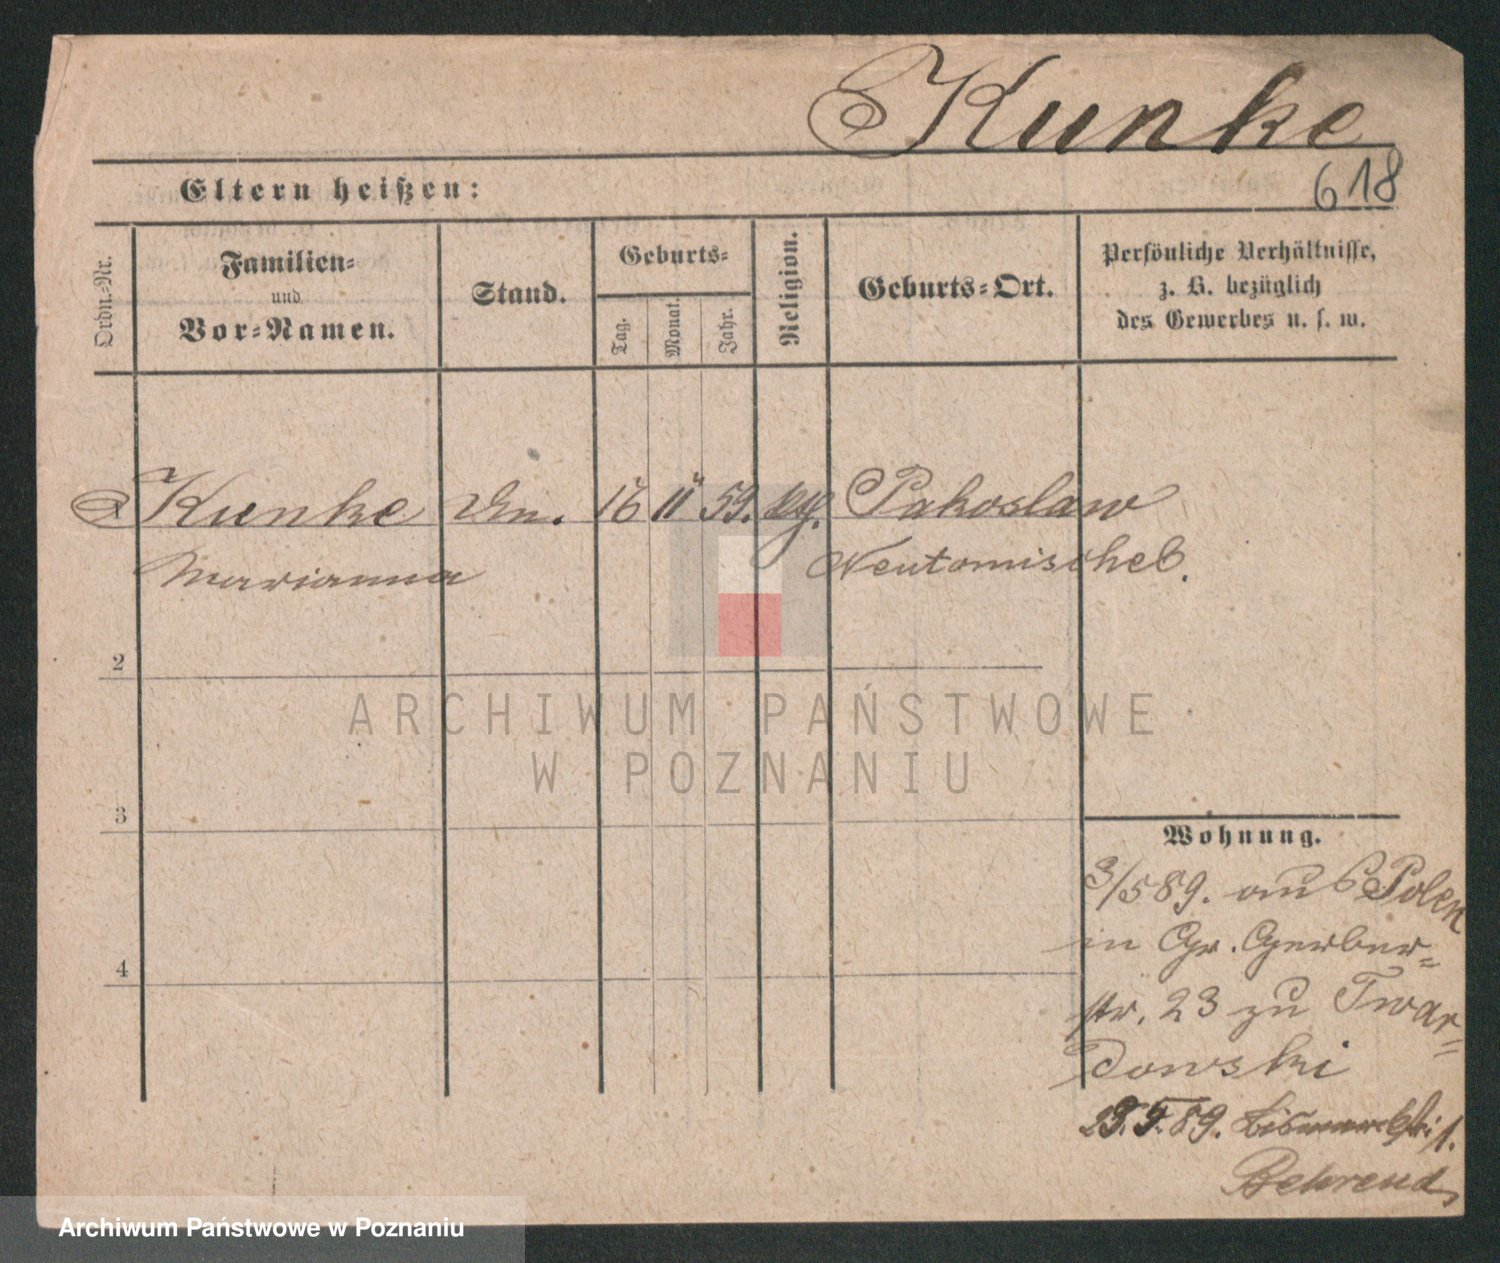 Kunke
618
Eltern heißen:
Ordn.-Nr.
Familien-
und
Vor-Namen.
Stand.
Geburts-
Tag.
Monat.
Jahr.
Religion.
Geburts-Ort.
Persönliche Verhältnisse,
z. B. bezüglich
des Gewerbes u. s. w.
Kunke 16 11 59. Pakoslaw
Marianna Neutomischel.
2
3
4
Wohnung.
3/5 89. aus Polen
in Gr. Gerber-
str. 23 zu Twar-
dowski
23.5.89. Bismarckstr. 1.
Behrend
ARCHIWUM PAŃSTWOWE
W POZNANIU
Archiwum Państwowe w Poznaniu